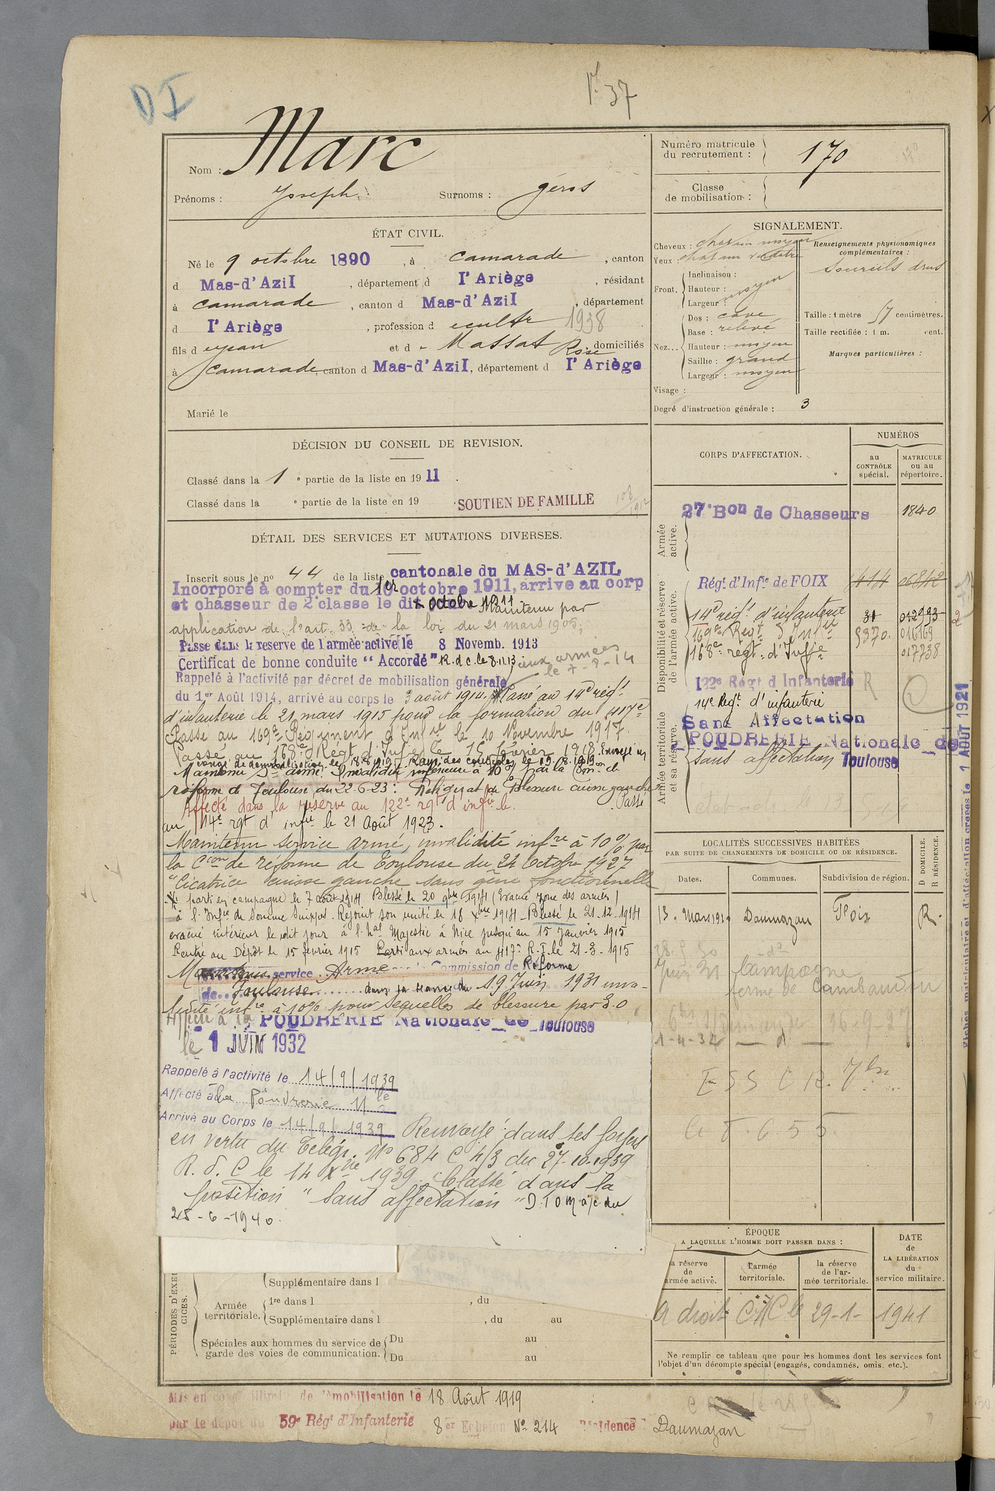 DI
37
Nom : Marc
Prénoms : Joseph. Surnoms : géros
Numéro matricule du recrutement : 170
Classe de mobilisation :
ÉTAT CIVIL.
Né le 9 octobre 1890, à camarade, canton
d Mas-d'Azil, département d l'Ariège, résidant
à camarade, canton d Mas-d'Azil, département
d l'Ariège, profession d cultr 1938
fils d et d Massat Rose, domiciliés
à camarade, canton d Mas-d'Azil, département d l'Ariège
Marié le
SIGNALEMENT.
Cheveux : chatain moyen
Yeux :
Front. Inclinaison :
Hauteur : moyen
Largeur :
Nez... Dos : cave
Base : relevé
Hauteur : moyen
Saillie : grand
Largeur : moyen
Visage :
Renseignements physionomiques complémentaires :
Sourcils drus
Taille : 1 mètre 57 centimètres.
Taille rectifiée : 1 m. cent.
Marques particulières :
Degré d'instruction générale : 3
DÉCISION DU CONSEIL DE REVISION.
Classé dans la 1 e partie de la liste en 1911.
Classé dans la e partie de la liste en 19
SOUTIEN DE FAMILLE
DÉTAIL DES SERVICES ET MUTATIONS DIVERSES.
Inscrit sous le no 44 de la liste cantonale du MAS-D'AZIL
Incorporé à compter du 10 octobre 1911, arrive au corp
et chasseur de 2e classe le dix octobre 1911. Maintenu par
application de l'art. 33 de la loi du 21 mars 1905;
Passé dans la réserve de l'armée active le 8 Novemb. 1913
Certificat de bonne conduite "Accordé" R.d.c. le 8.11.13 aux armées
le 7-8-14
Rappelé à l'activité par décret de mobilisation générale
du 1er Août 1914, arrivé au corps le 3 août 1914. Passé au 14e régt
d'infanterie le 21 mars 1915 pour la formation du 417e
Passé au 169e Régiment d'Infie le 10 Novembre 1917.
Passé au 168e Régt d'Infie le 15 février 1918. Envoyé en
congé de démobilisation le 18.8.1919
Maintenu Sce armé Invalidité inférieure à 10% par la Con de
réforme de Toulouse du 22-6-23: Blessure cuisse gauche
Affecté dans la réserve au 122e rgt d'infie le. Passé
au 14e rgt d'infie le 21 Août 1923.
Maintenu service armé, invalidité infre à 10% par
la Con de réforme de Toulouse du 24 Octobre 1927
"Cicatrice cuisse gauche sans gêne fonctionnelle
parti en campagne le 7 août 1914 Blessé le 20 1914 (Evacué zone des armées)
à l'Infie de Somme Suippes. Rejoint son unité le 16 Xbre 1914 - Blessé le 21.12.1914
évacué intérieur le dit jour à l'hal Majestic à Nice jusqu'au 15 Janvier 1915
Rentré au Dépôt le 15 février 1915 Parti aux armées au 417e R.I. le 21.3.1915
service Armé Commission de Réforme
de Toulouse dans sa séance du 19 Juin 1931 inva-
lidité infre à 10% pour séquelles de blessure par E.O
Affecté à la POUDRERIE Nationale de Toulouse
le 1 JUIN 1932
Rappelé à l'activité le 14/9/1939
Affecté à la Poudrerie Nle
Arrivé au Corps le 14/9/1939 Renvoyé dans ses foyers
en vertu du Télég. No 684 C 4/3 du 27-10-1939
R.d.C le 14 Xbre 1939. Classé dans la
position "sans affectation"
25-6-1940.
CORPS D'AFFECTATION.
NUMÉROS
au CONTRÔLE spécial.
MATRICULE ou au répertoire.
Armée active.
27e Bon de Chasseurs 1840
Disponibilité et réserve de l'armée active.
Régt d'Infie de FOIX
14e régt d'infanterie
169e Regt d'Infie 5370
168e régt d'Inffie
122e Régt d'Infanterie
Armée territoriale et sa réserve.
14e Regt d'infanterie
Sans Affectation
POUDRERIE Nationale de Toulouse
sans affectation
1 AOUT 1921
LOCALITÉS SUCCESSIVES HABITÉES
PAR SUITE DE CHANGEMENTS DE DOMICILE OU DE RÉSIDENCE.
Dates. Communes. Subdivision de région. D DOMICILE. R RÉSIDENCE.
Daumazan Foix R.
Juin 31 Campagne
ferme de
1-4-32
ÉPOQUE
A LAQUELLE L'HOMME DOIT PASSER DANS :
la réserve de l'armée active.
l'armée territoriale.
la réserve de l'armée territoriale.
DATE de LA LIBÉRATION du service militaire.
A droit C A C le 29-1-1941
Ne remplir ce tableau que pour les hommes dont les services font
l'objet d'un décompte spécial (engagés, condamnés, omis, etc.).
PÉRIODES D'EXERCICES.
Supplémentaire dans l
Armée territoriale. 1re dans l , du
Supplémentaire dans l , du au
Spéciales aux hommes du service de garde des voies de communication. Du au
Du au
Mis en de démobilisation le 18 Août 1919
par le dépôt du 59e Régt d'Infanterie 8er Echelon No 214 Résidence Daumazan